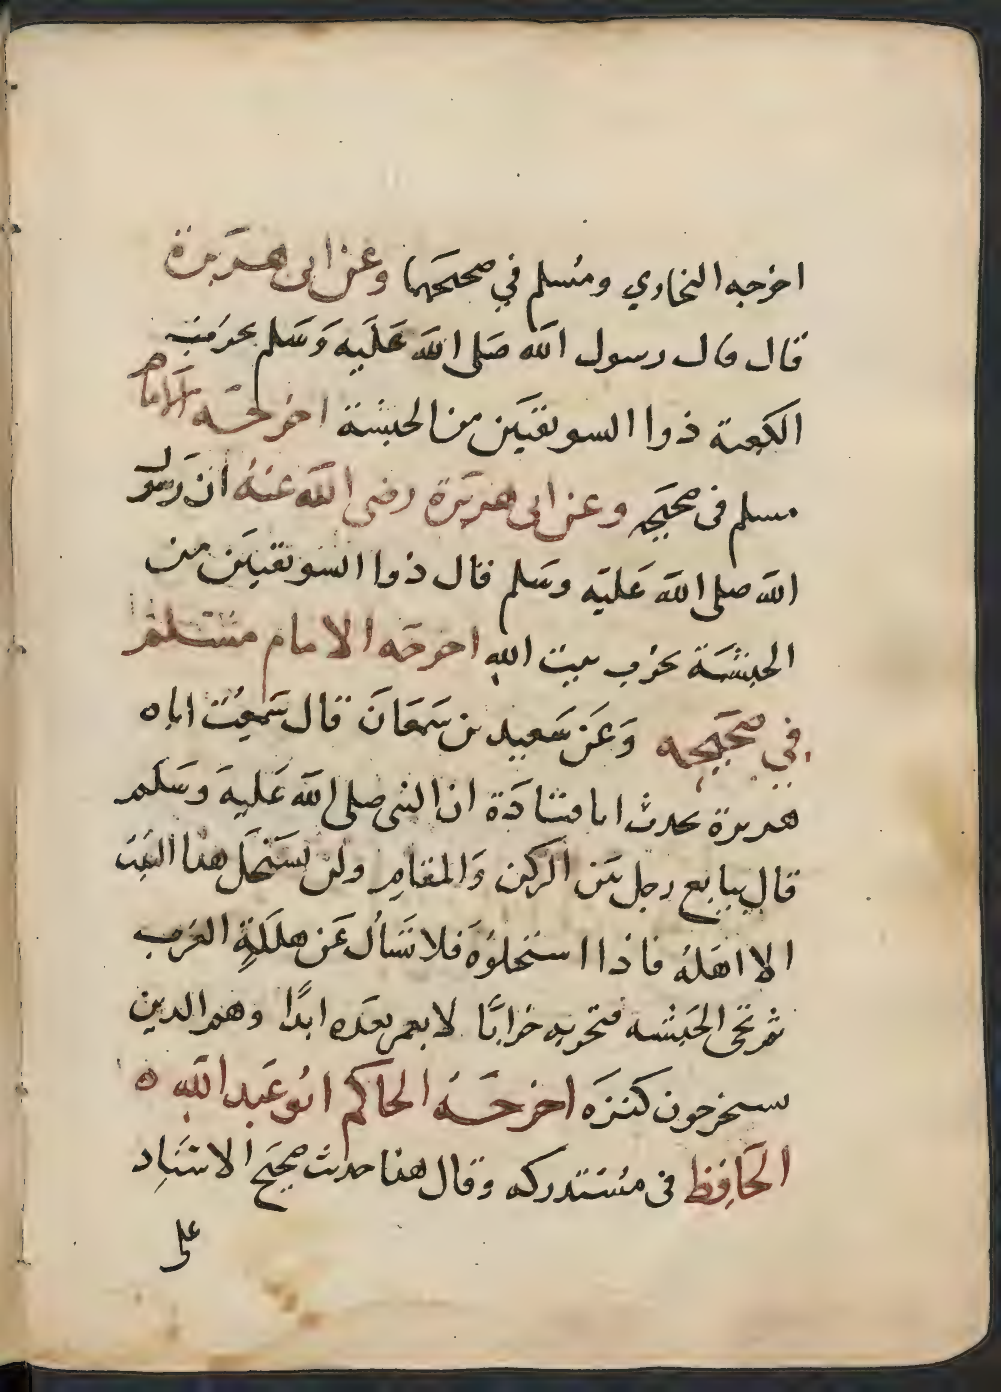 اخرجه البخاري ومسلم في صحيحهما وعن ابى هريرة
قال قال رسول الله صلى الله عليه وسلم يخرب
الكعبة ذوا السويقتين من الحبشة اخرجه الامام
مسلم في صحيحه وعن ابى هريرة رضى الله عنه ان رسول
الله صلى الله عليه وسلم قال ذوا السويقتين من
الحبشة يخرب بيت الله اخرجه الامام مسلم
في صحيحه وعن سعيد بن سمعان قال سمعت اباه
هريرة يحدث ابا قتادة ان النبى صلى الله عليه وسلم
قال يبايع رجل بين الركن والمقام ولن يستحل هذا البيت
الا اهله فاذا استحلوه فلا تسأل عن هلكة العرب
ثم تجى الحبشه فتخربه خرابًا لا يعمر بعده ابدًا وهم الذين
يستخرجون كنزه اخرجه الحاكم ابو عبد الله ه
الحافظ في مستدركه وقال هذا حديث صحيح الاسناد
على